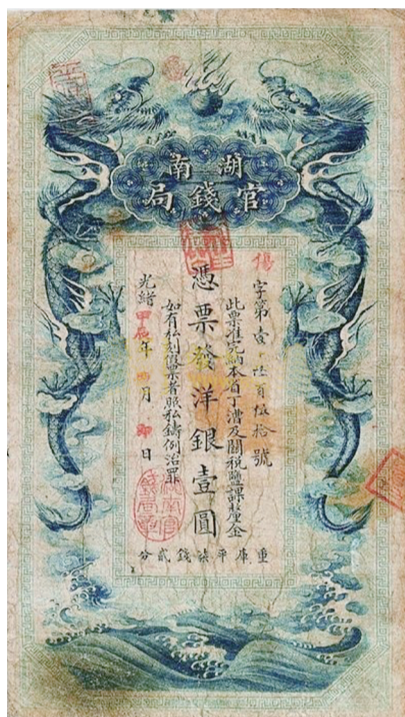 湖南
官錢局
傷字第壹千陆百伍拾號
此票准完納本省丁漕及關稅鹽課釐金
憑票發洋銀壹圓
如有私刻假票者照私鑄例治罪
光緒甲辰年 月 日
重庫平柒錢貳分